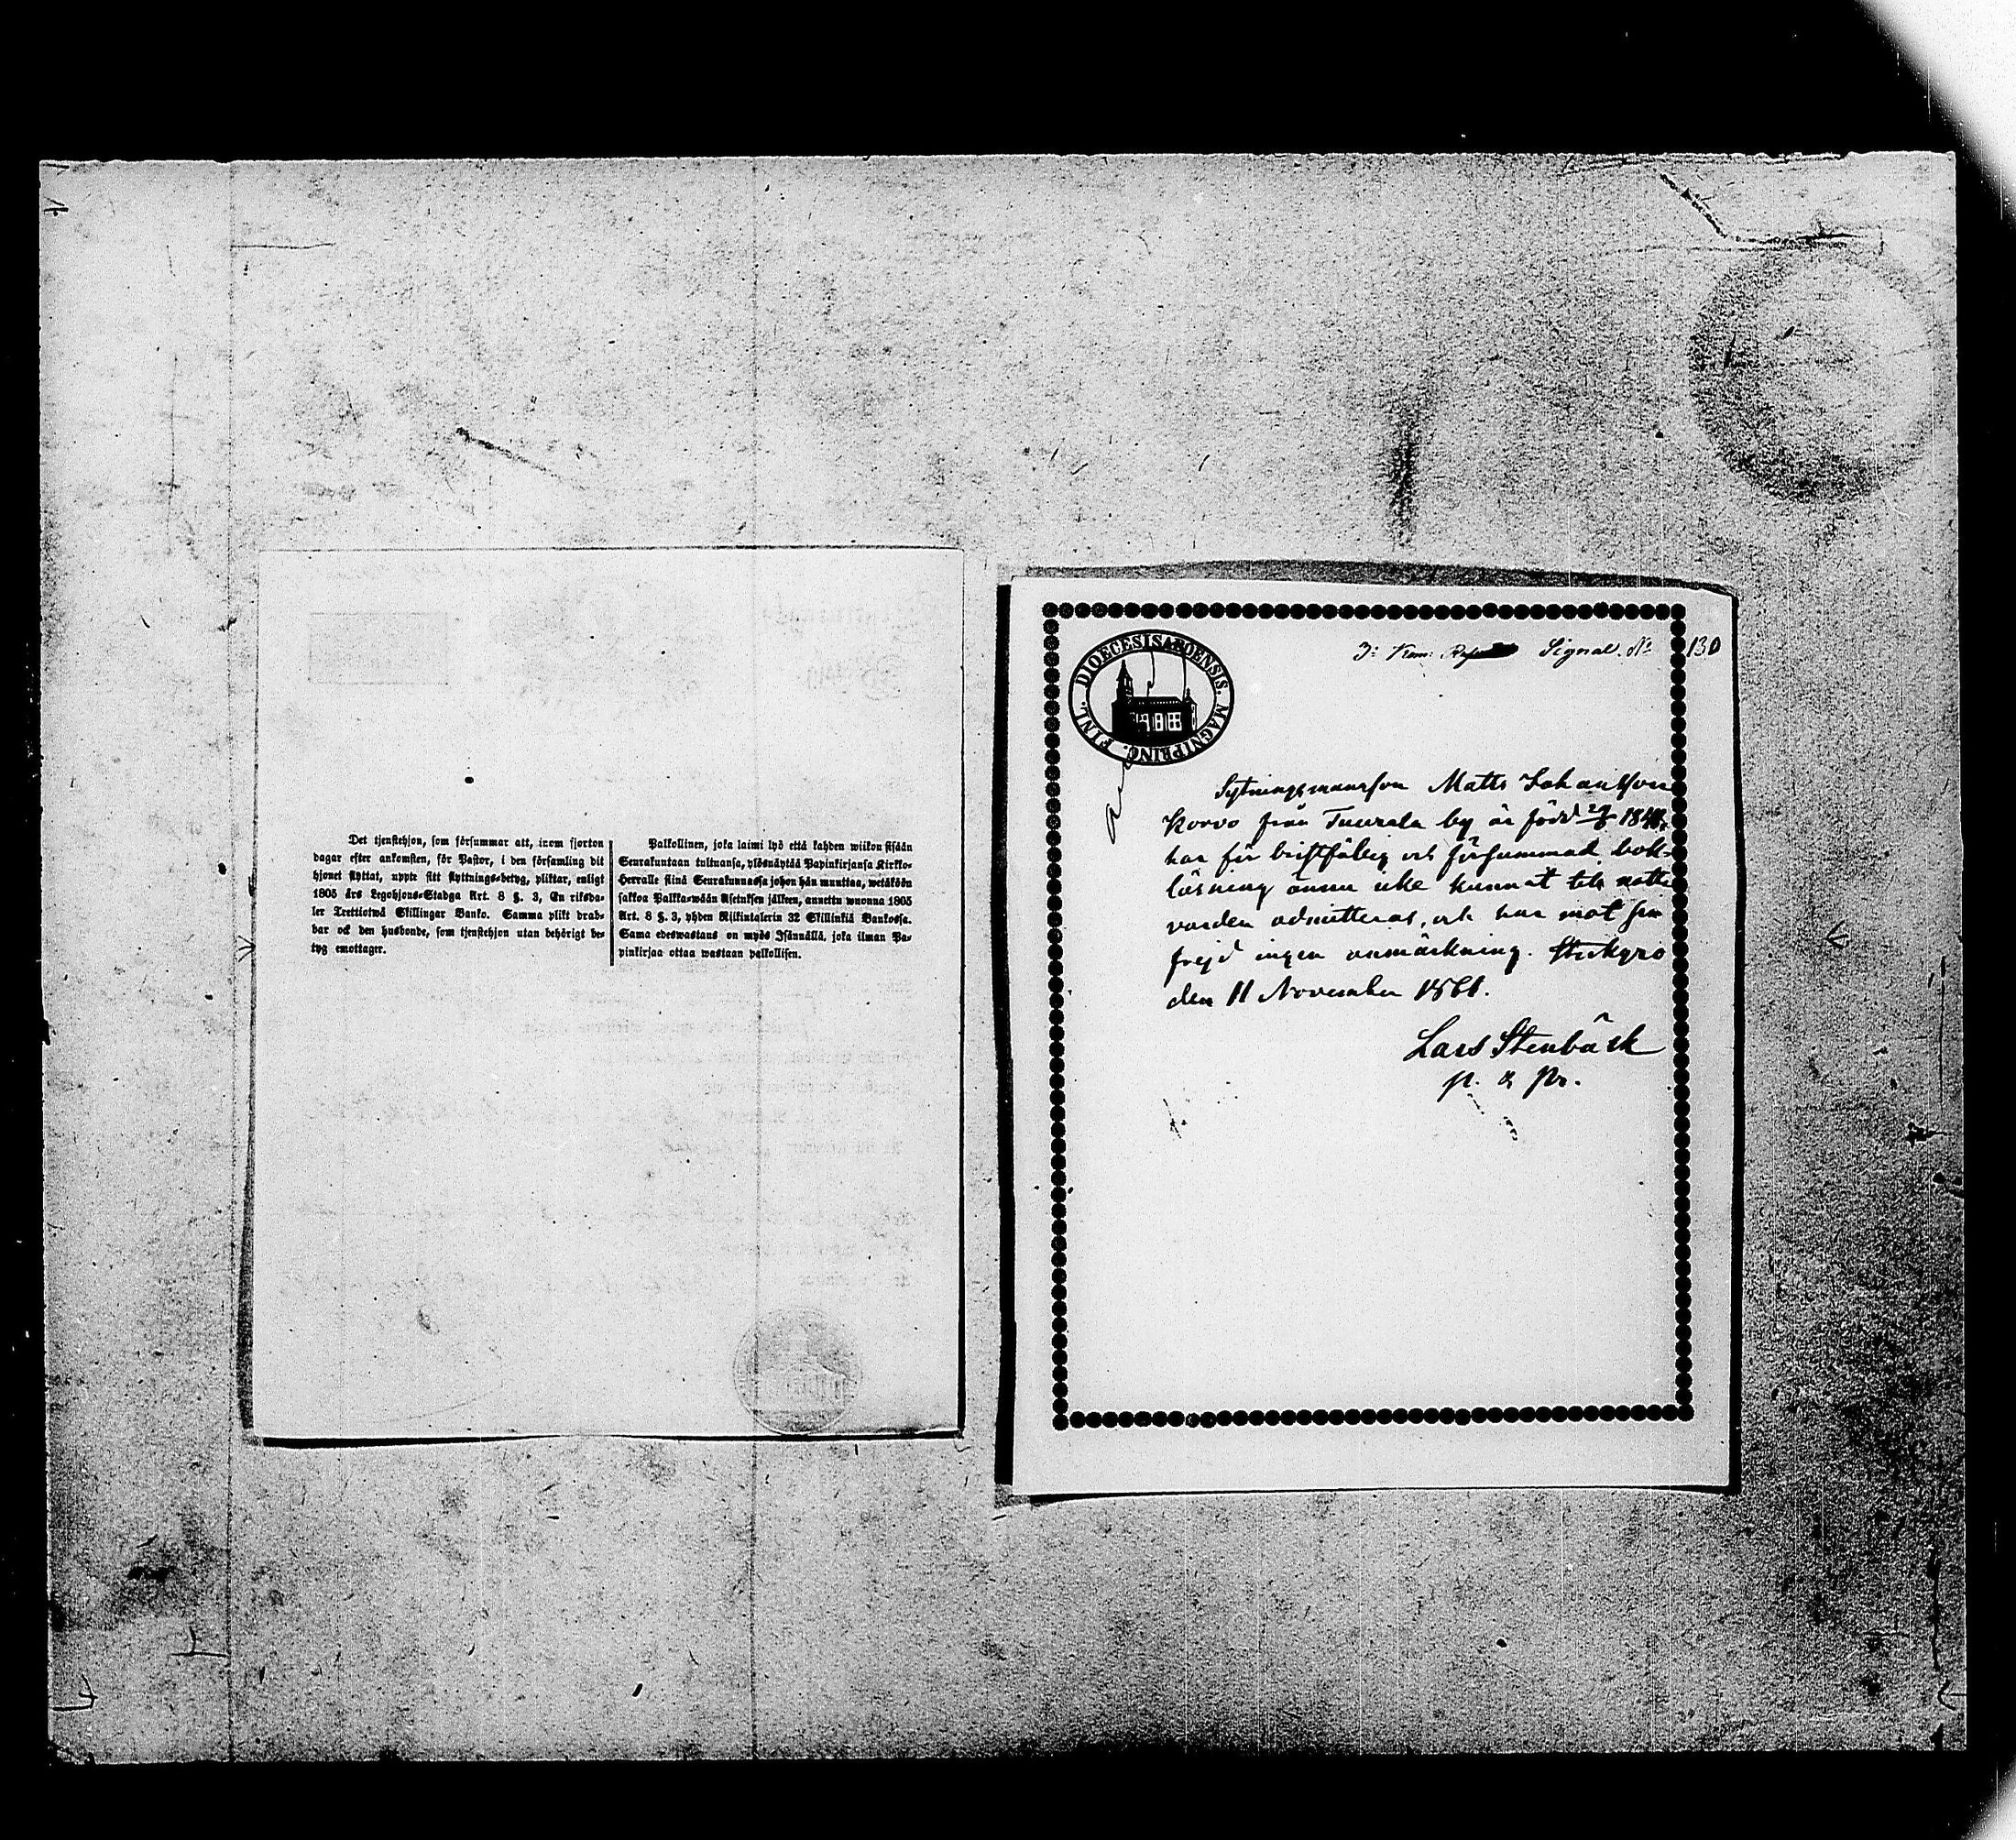 Det tjenstehjon, som försummar att, inom fjorton
dagar efter ankomsten, för Pastor, i den församling dit
hjonet flyttat, uppte sitt flyttnings-betyg, pliktar, enligt
1805 års Legohjons-Stadga Art. 8 §. 3, En riksda-
ler Trettiotwå Skillingar Banko. Samma plikt drab-
bar ock den husbonde, som tjenstehjon utan behörigt be-
tyg emottager.
Palkollinen, joka laimi lyö että kahden wiikon sisään
Seurakuntaan tultuansa, ylösnäytää Papinkirjansa Kirkko-
Herralle siinä Seurakunnassa johon hän muuttaa, wetäköön
sakkoa Palkka-wään Asetuksen jälkeen, annettu wuonna 1805
Art. 8 §. 3, yhden Riikintalerin 32 Skillinkiä Bankossa.
Sama edeswastaus on myös Isännällä, joka ilman Pa-
pinkirjaa ottaa wastaan palkollisen.
DIOECESIS ABOENSIS. MAGNI PRINC. FINL.
Signal. No 130
Sytningsmansson Matts Johansson
Korvo från Tuurala by är född
har för bristfällig och försummad bok-
läsning ännu icke kunnat till natt-
varden admitteras, och har mot sin
frejd ingen anmärkning. Storkyro
den 11 November 1861.
Lars Stenbäck
p. & pr.